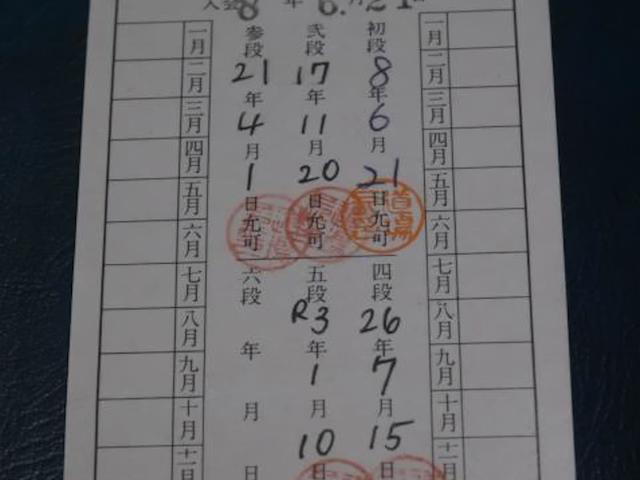 入会8年6月21日
初段8年6月21日允可
弐段17年11月20日允可
参段21年4月1日允可
四段26年7月15日
五段R3年1月10日
六段 年 月 日
一月
二月
三月
四月
五月
六月
七月
八月
九月
十月
十一月
一月
二月
三月
四月
五月
六月
七月
八月
九月
十月
十一月